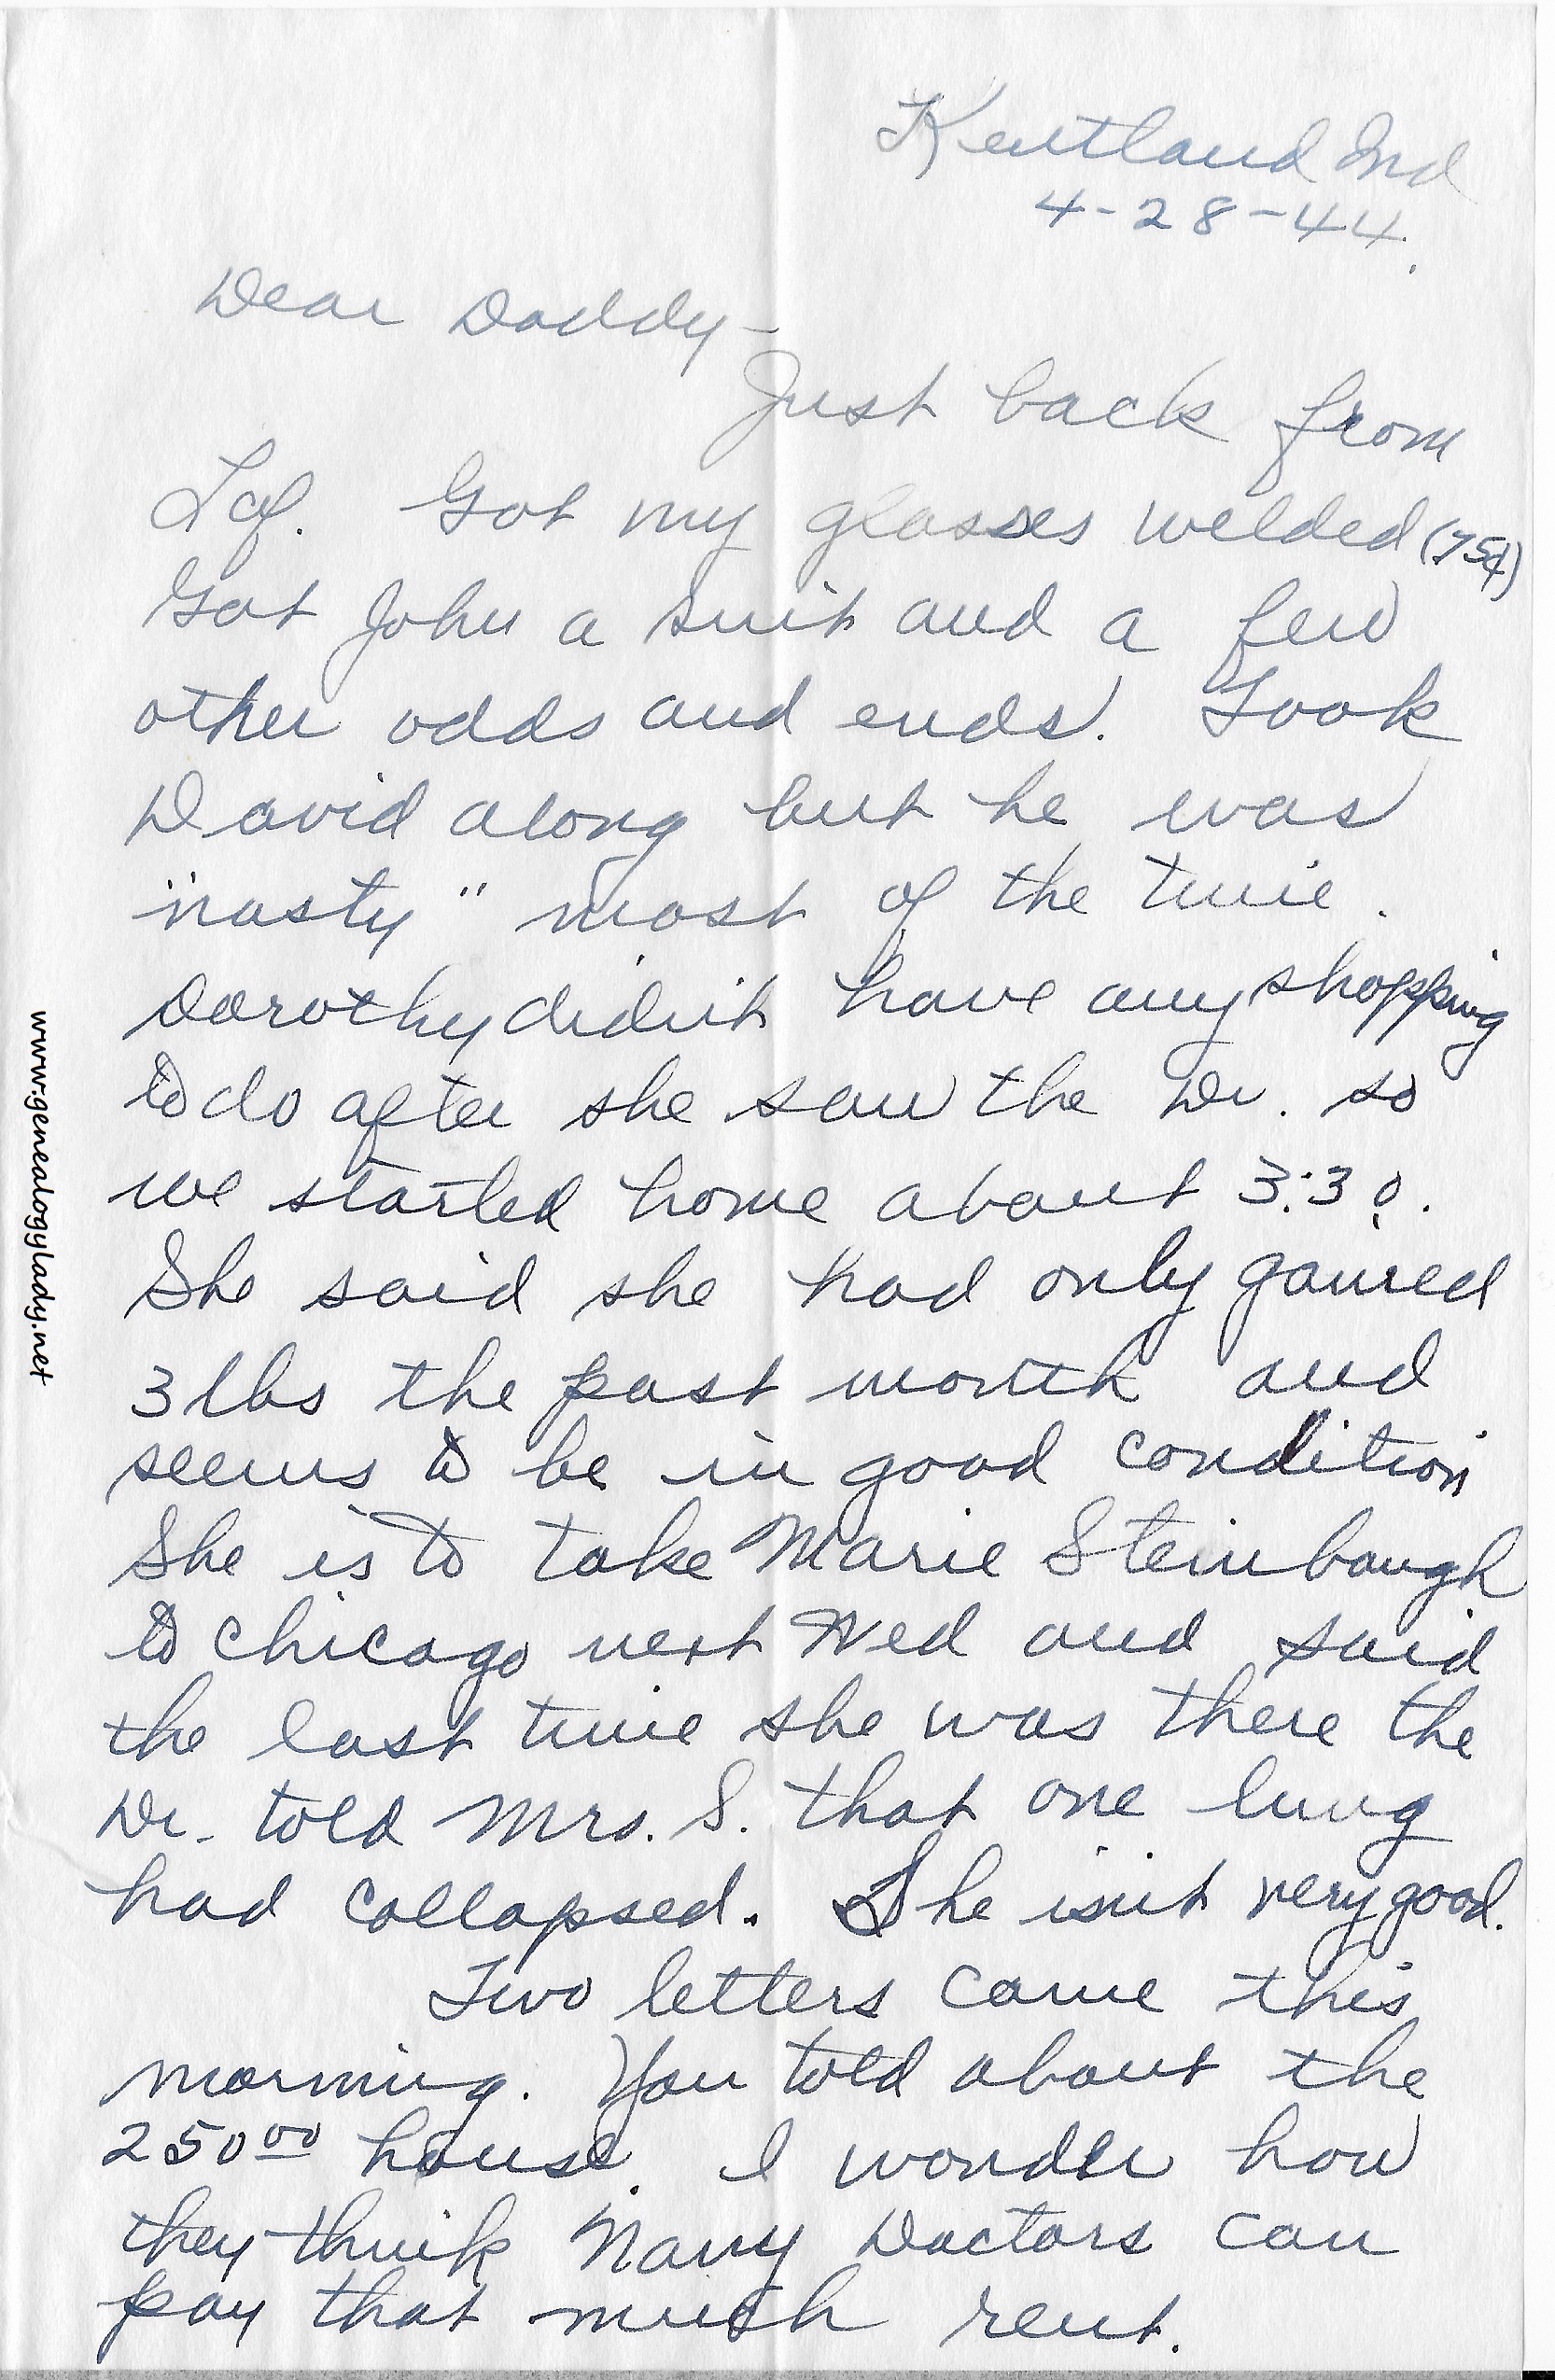 Kentland Ind
4-28-44.
Dear Daddy-
Just back from
Laf. Got my glasses welded (75¢)
Got John a suit and a few
other odds and ends. Took
David along but he was
"nasty" most of the time.
Dorothy didn't have any shopping
to do after she saw the Dr. so
we started home about 3:30.
She said she had only gained
3 lbs the past month and
seems to be in good condition
She is to take Marie Steinbaugh
to Chicago next Wed and said
the last time she was there the
Dr. told Mrs. S. that one lung
had collapsed. She isn't very good.
Two letters came this
morning. You told about the
250 00 house. I wonder how
they think Navy Doctors can
pay that much rent.
www.genealogylady.net